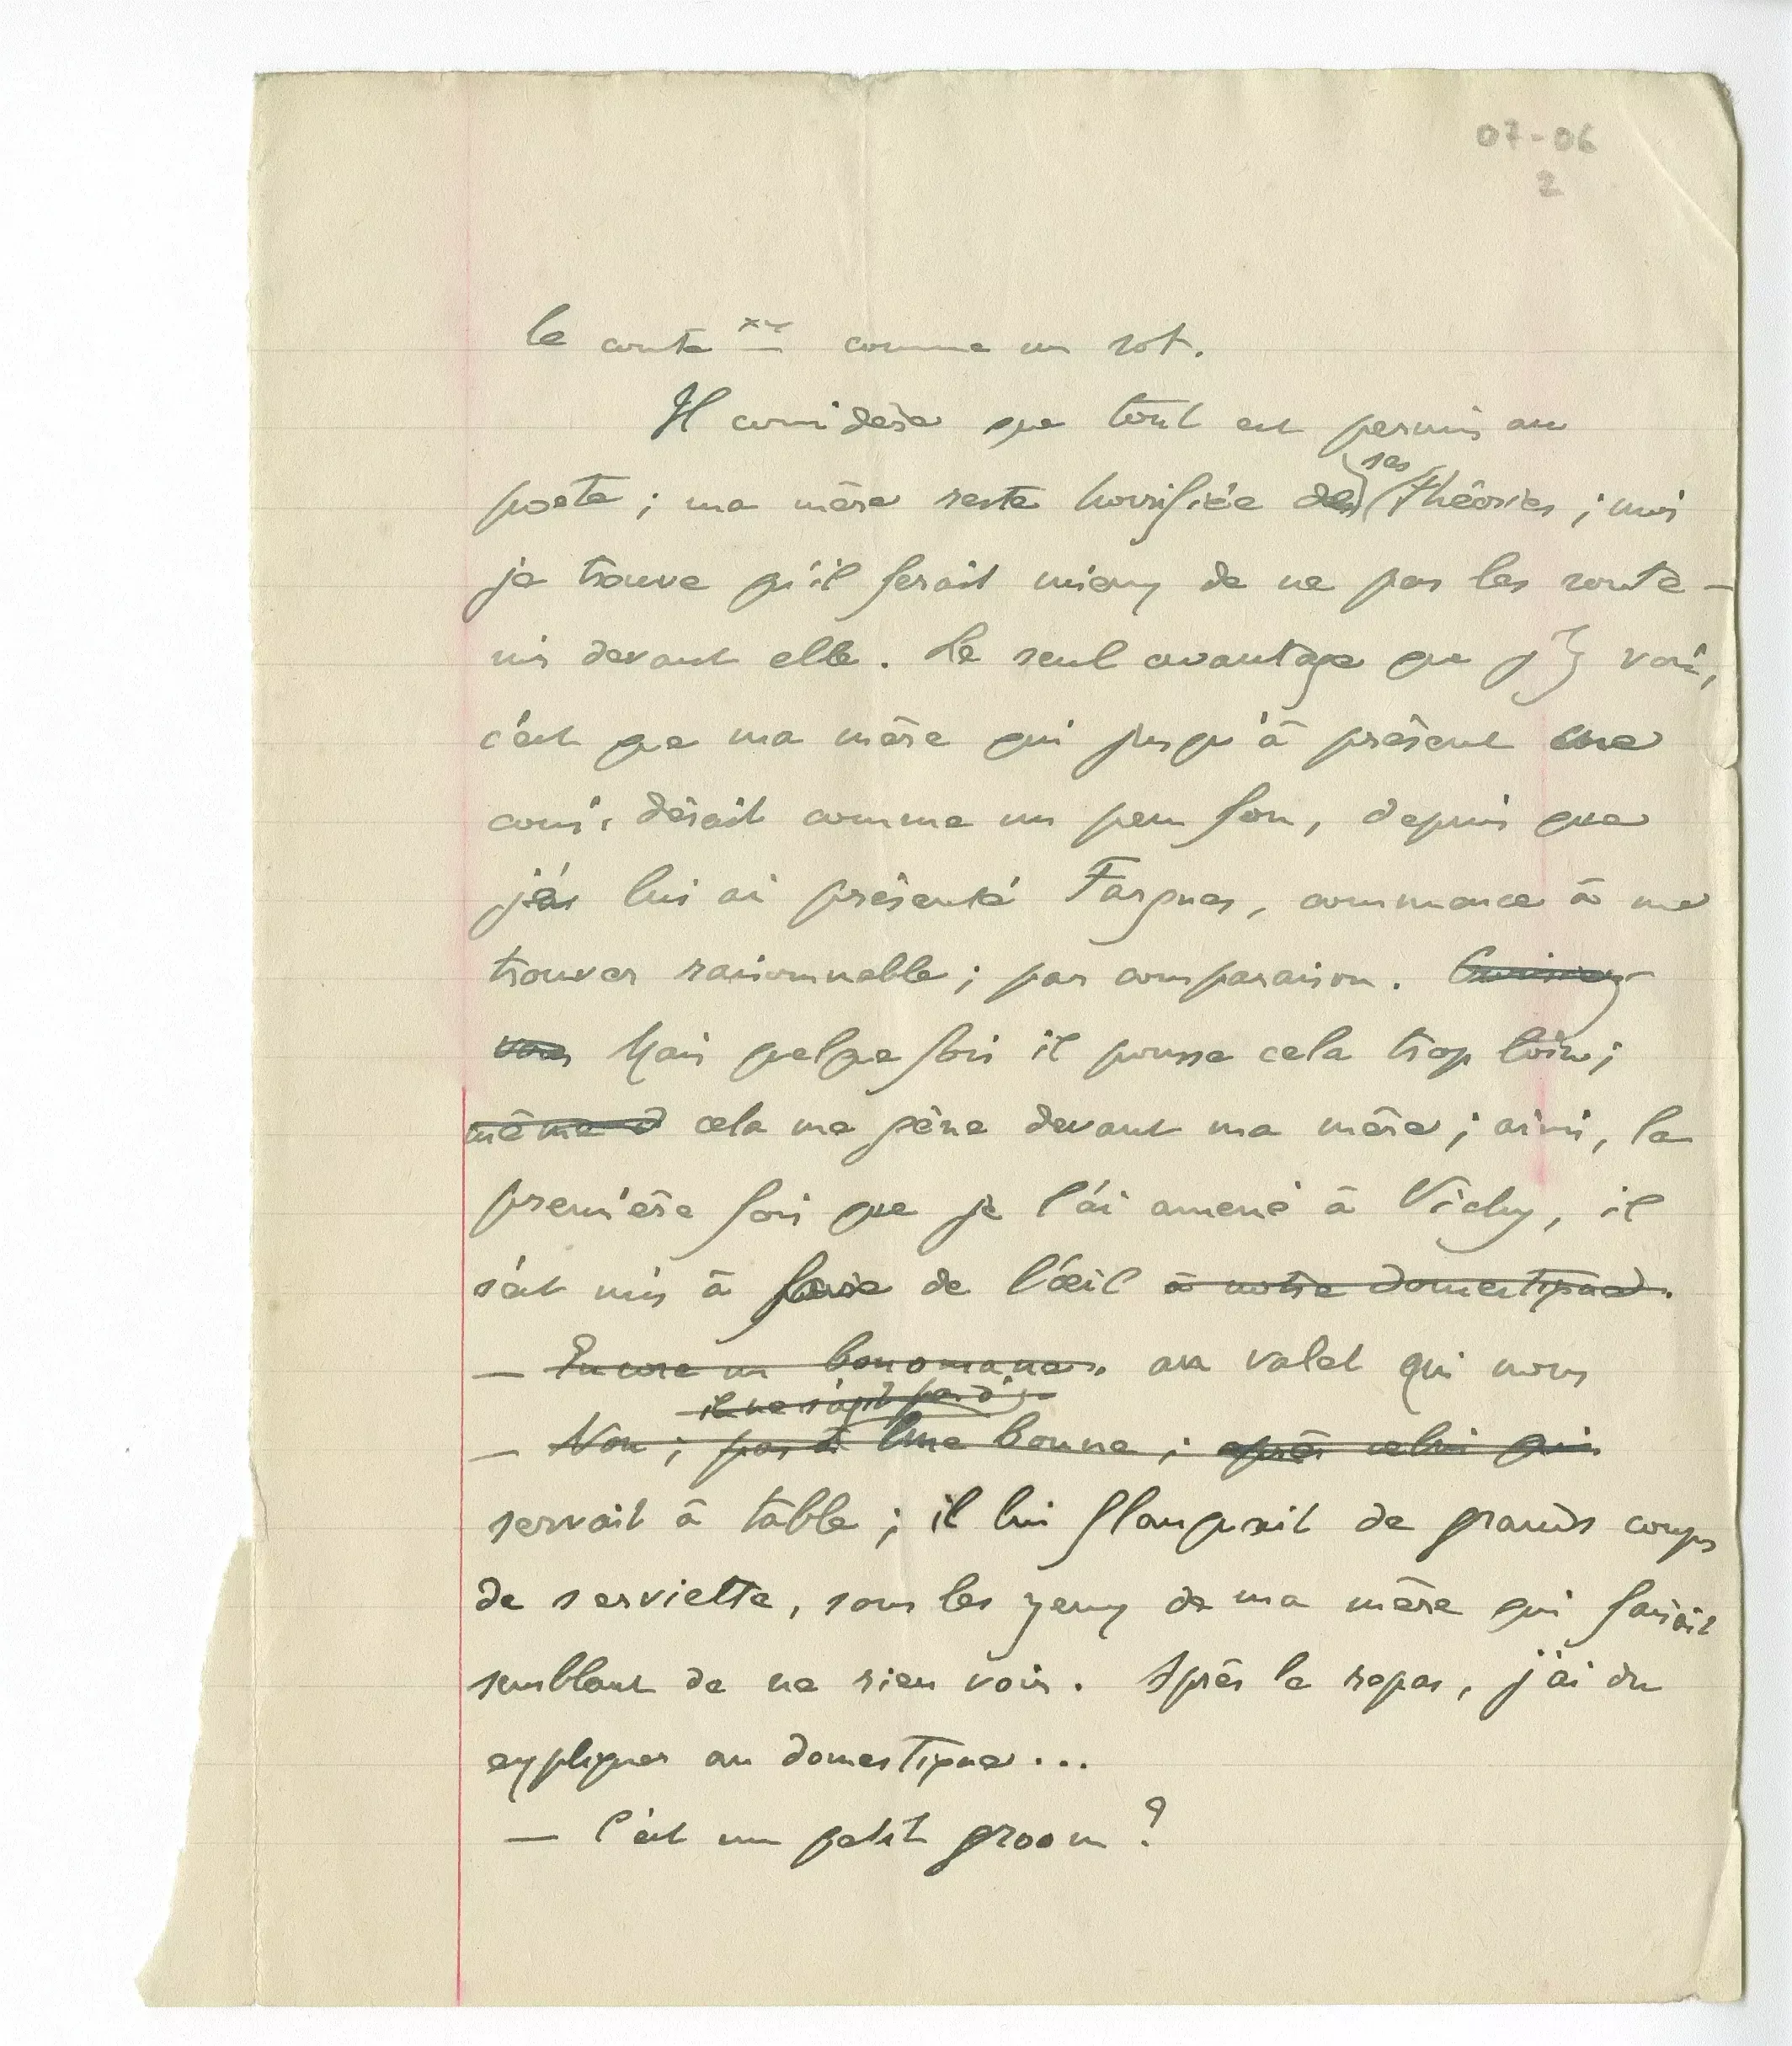 07-06
2
le conte comme un rot.
Il considère que tout est permis au
poète ; ma mère reste horrifiée des ses théories ; moi
je trouve qu'il ferait mieux de ne pas les soute-
nir devant elle. Le seul avantage que j'y vois,
c'est que ma mère qui jusqu'à présent me
considérait comme un peu fou, depuis que
je lui ai présenté Fargues, commence à me
trouver raisonnable ; par comparaison.
vous Mais quelque fois il pousse cela trop loin ;
même à cela me gène devant ma mère ; ainsi, la
première fois que je l'ai amené à Vichy, il
s'est mis à faire de l'œil à notre domestique.
— Encore un au valet qui nous
il ne s'agit pas d'
— Non ; pas à Une bonne ; après celui qui
servait à table ; il lui flanquait de grands coups
de serviette, sous les yeux de ma mère qui faisait
semblant de ne rien voir. Après le repas, j'ai du
expliquer au domestique...
— C'est un petit groom ?